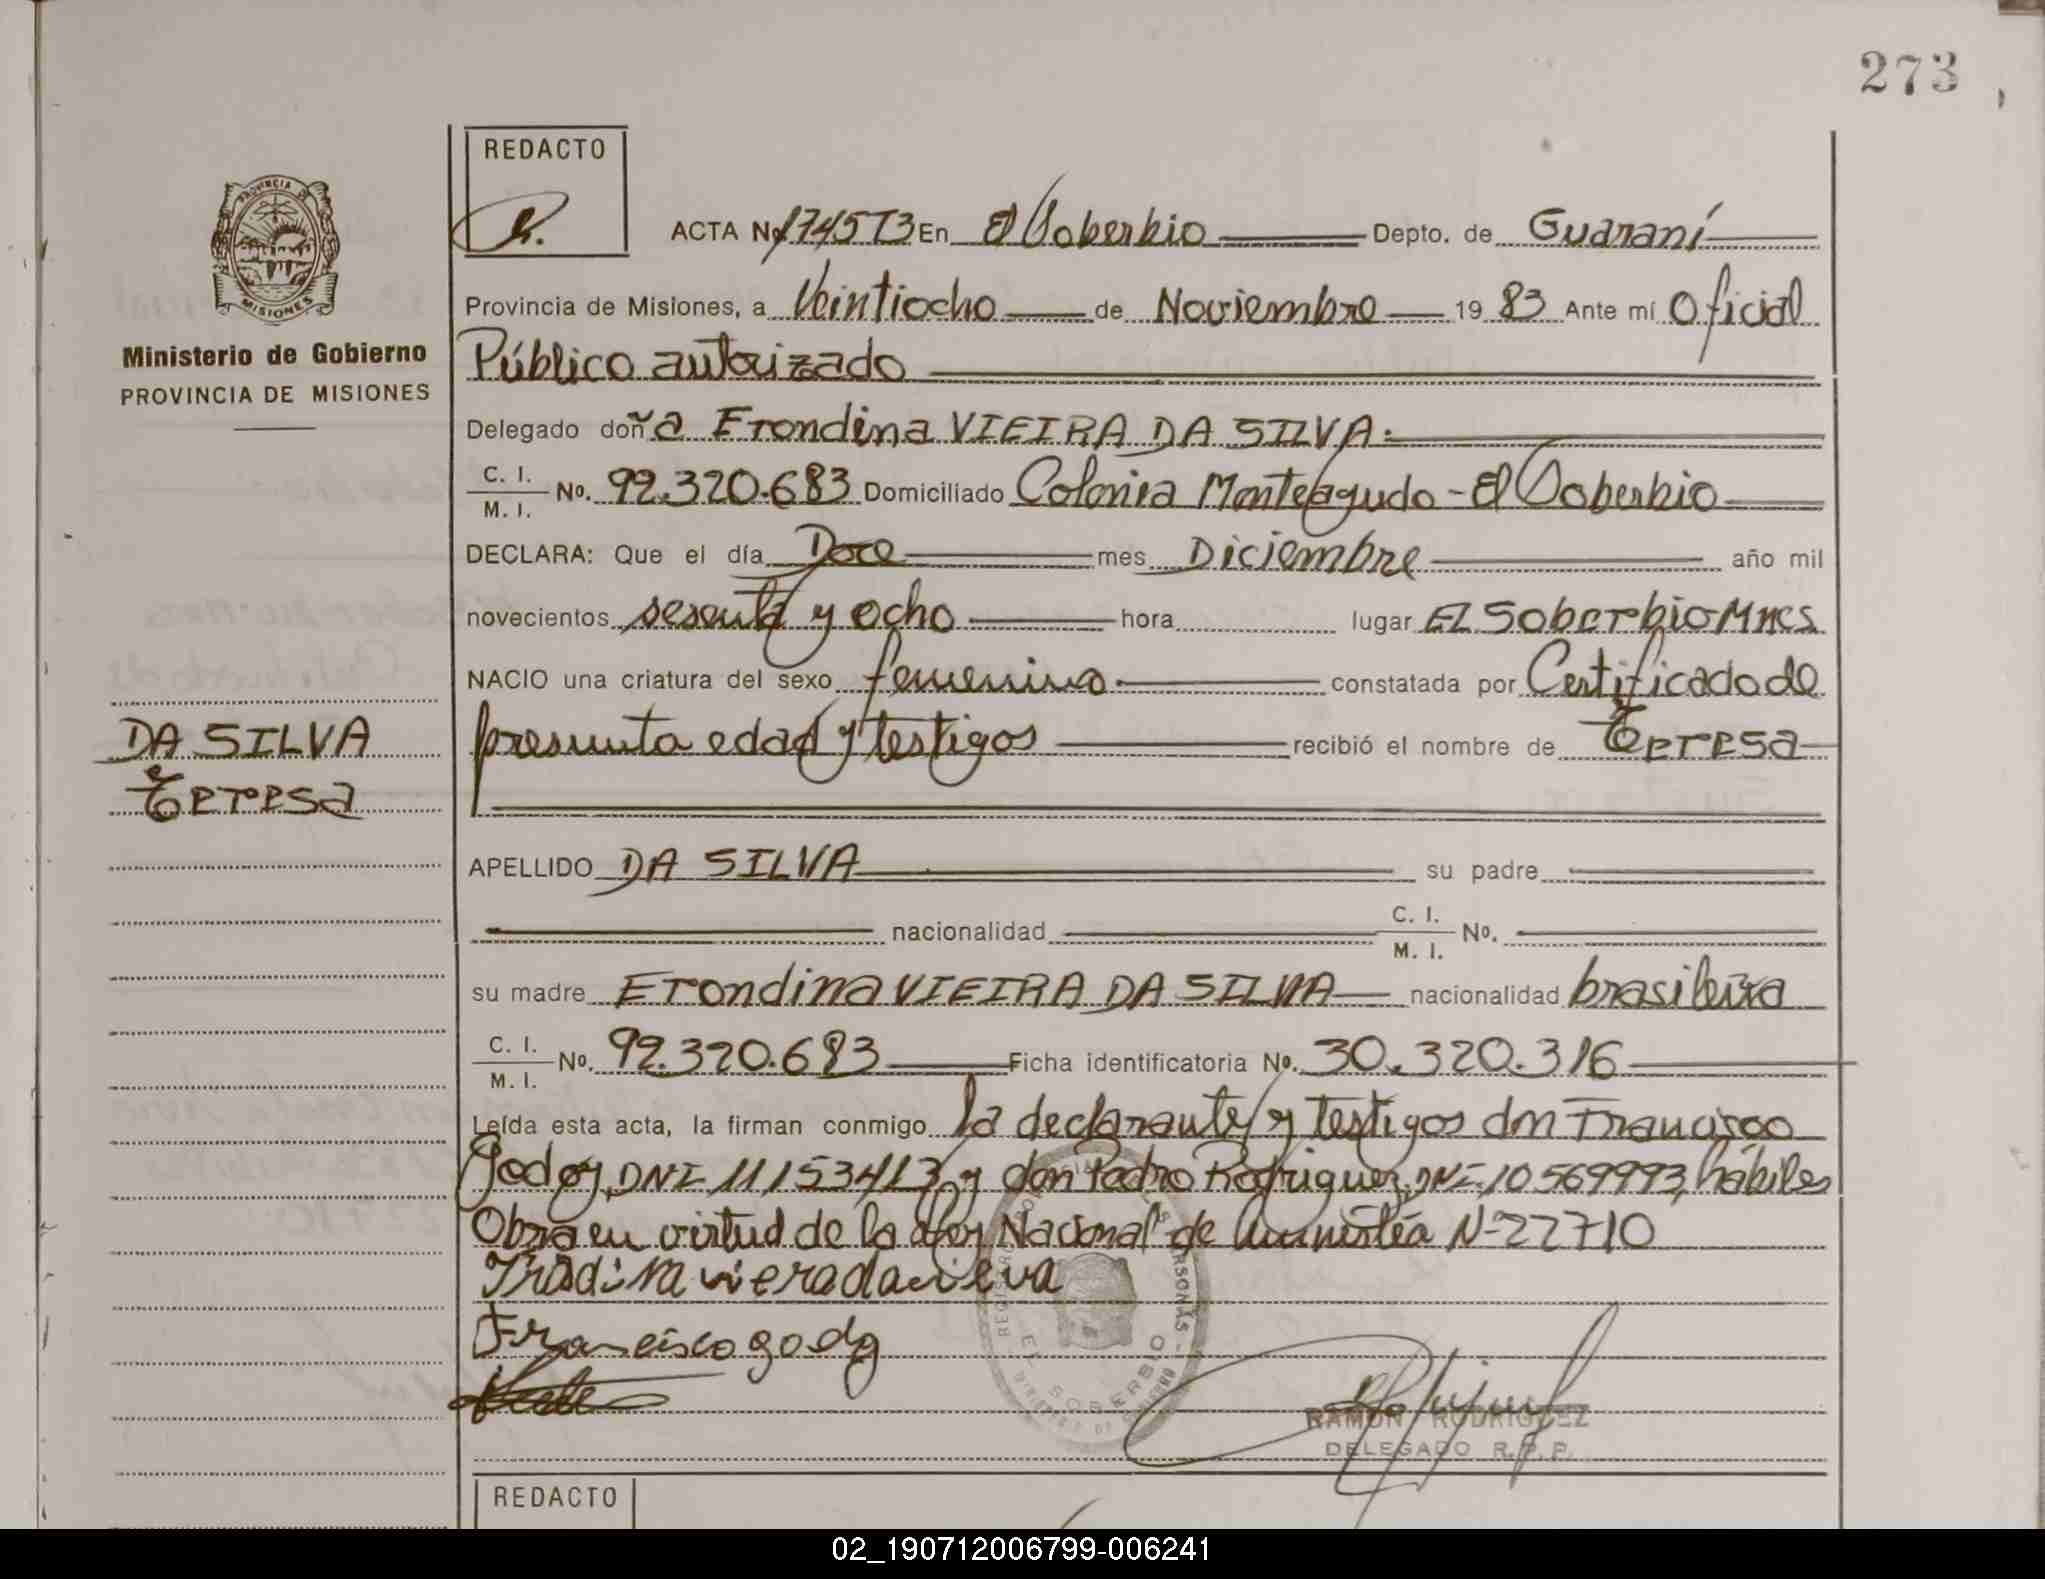 273
REDACTO
ACTA Nº 174573 En El Soberbio Depto. de Guaraní
Provincia de Misiones, a Veintiocho de Noviembre 19 83 Ante mí Oficial
Público autorizado
Ministerio de Gobierno
PROVINCIA DE MISIONES
Delegado doña Erondina VIEIRA DA SILVA.
C. I.
M. I.
No. 92.320.683 Domiciliado Colonia Monteagudo - El Soberbio
DECLARA: Que el día Doce mes Diciembre año mil
novecientos sesenta y ocho hora lugar EL Soberbio Mnes
NACIO una criatura del sexo femenino constatada por Certificado de
presunta edad y testigos recibió el nombre de Teresa
DA SILVA
Teresa
APELLIDO DA SILVA su padre
nacionalidad C. I.
M. I. No.
su madre Erondina VIEIRA DA SILVA nacionalidad brasileira
C. I.
M. I.
No. 92.320.683 Ficha identificatoria No. 30.320.316
Leída esta acta, la firman conmigo la declarante y testigos don Francisco
Godoy, DNI 11153413 y don Pedro Rodriguez, DNI 10569993, hábiles
Obra en virtud de la Ley Nacional de Amnistía N-22710
Francisco godoy
EL SOBERBIO
RAMON RODRIGUEZ
DELEGADO R.P.P.
REDACTO
02_190712006799-006241